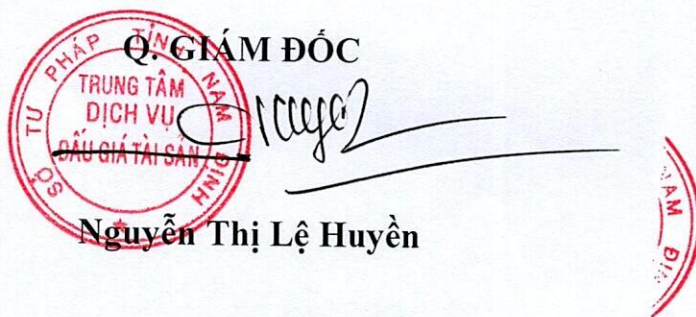 Q. GIÁM ĐỐC
SỞ TƯ PHÁP TỈNH NAM ĐỊNH
TRUNG TÂM
DỊCH VỤ
ĐẤU GIÁ TÀI SẢN
Nguyễn Thị Lệ Huyền
NAM ĐỊNH